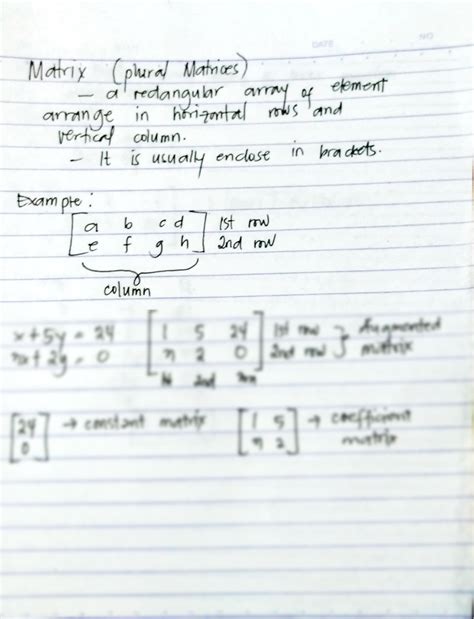 DATE NO
Matrix (plural Matrices)
- a rectangular array of element
arrange in horizontal rows and
vertical column.
- It is usually enclose in brackets.
Example:
[a b c d] 1st row
[e f g h] 2nd row
column
x+5y = 24 [1 5 24] 1st row } Augmented
x+2y = 0 [2 0] 2nd row } matrix
2nd
[24] → constant matrix [1 5] → coefficient
[0] [2] matrix